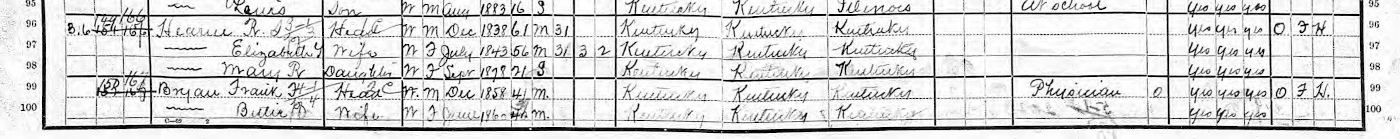 95 Louis Son W M Aug 1883 16 S Kentucky Kentucky Illinois At school yes yes yes 95
96 Hearne R. Head W M Dec 1838 61 M 31 Kentucky Kentucky Kentucky yes yes yes O F H. 96
97 — Elizabeth Wife W F July 1843 56 M 31 3 2 Kentucky Kentucky Kentucky yes yes yes 97
98 — Mary R Daughter W F Sept 1878 21 S Kentucky Kentucky Kentucky yes yes yes 98
99 Bryan Frank Head W. M Dec 1858 41 M. Kentucky Kentucky Kentucky Physician 0 yes yes yes O F H. 99
100 — Wife W F June M. Kentucky Kentucky Kentucky yes yes yes 100